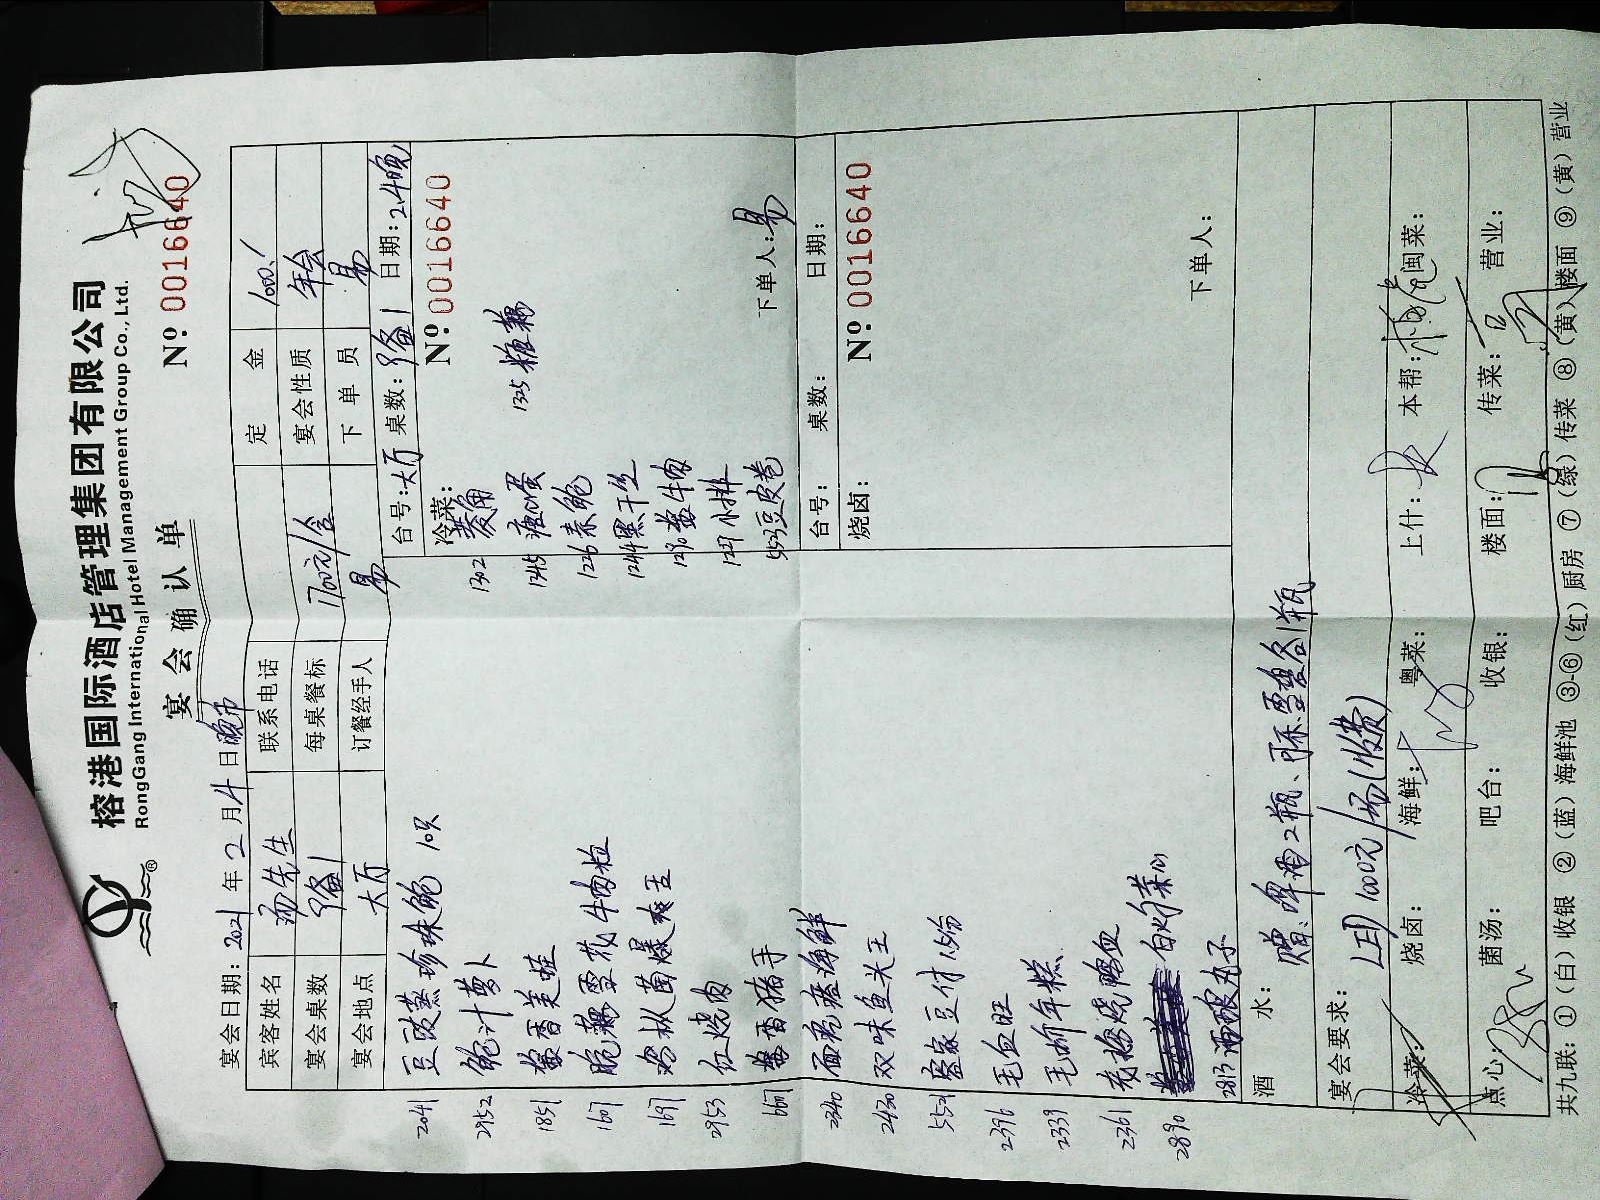 榕港国际酒店管理集团有限公司
RongGang International Hotel Management Group Co., Ltd.
宴会确认单
Nº 0016640
宴会日期：2021年2月4日晚市
宾客姓名 汤先生 联系电话 定金 1000
宴会桌数 9备1 每桌餐标 1700元/含 宴会性质 年会
宴会地点 大厅 订餐经手人 易 下单员 易
台号：大厅 桌数：9备1 日期：2.4晚
Nº 0016640
冷菜：
1302 菱角 1325 糖藕
1345 蛋
1226 素鲍
1244 黑干丝
1290 酱牛肉
1221 小排
豆皮卷
下单人：易
台号： 桌数： 日期：
Nº 0016640
烧卤：
下单人：
2041 豆豉蒸珍珠鲍 10只
2952 鲍汁萝卜
1851 酱香美蛙
1607 脆藕雪花牛肉粒
1691 菌爆
2953 红烧肉
6607 酱香猪手
2340 海鲜
2430 双味鱼头王
5521 豆付 1份
2396 毛血旺
2339 年糕
2361 烧鸭血
2890 白灼菜心
2813 丸子
酒水： 赠：啤酒2瓶、可乐雪碧各1瓶
宴会要求： LED 1000元/场(收费)
冷菜： 烧卤： 海鲜： 粤菜： 上什： 本帮： 闽菜：
点心： 菌汤： 吧台： 收银： 楼面： 传菜： 营业：
共九联：①(白)收银 ②(蓝)海鲜池 ③-⑥(红)厨房 ⑦(绿)传菜 ⑧(黄)楼面 ⑨(黄)营业